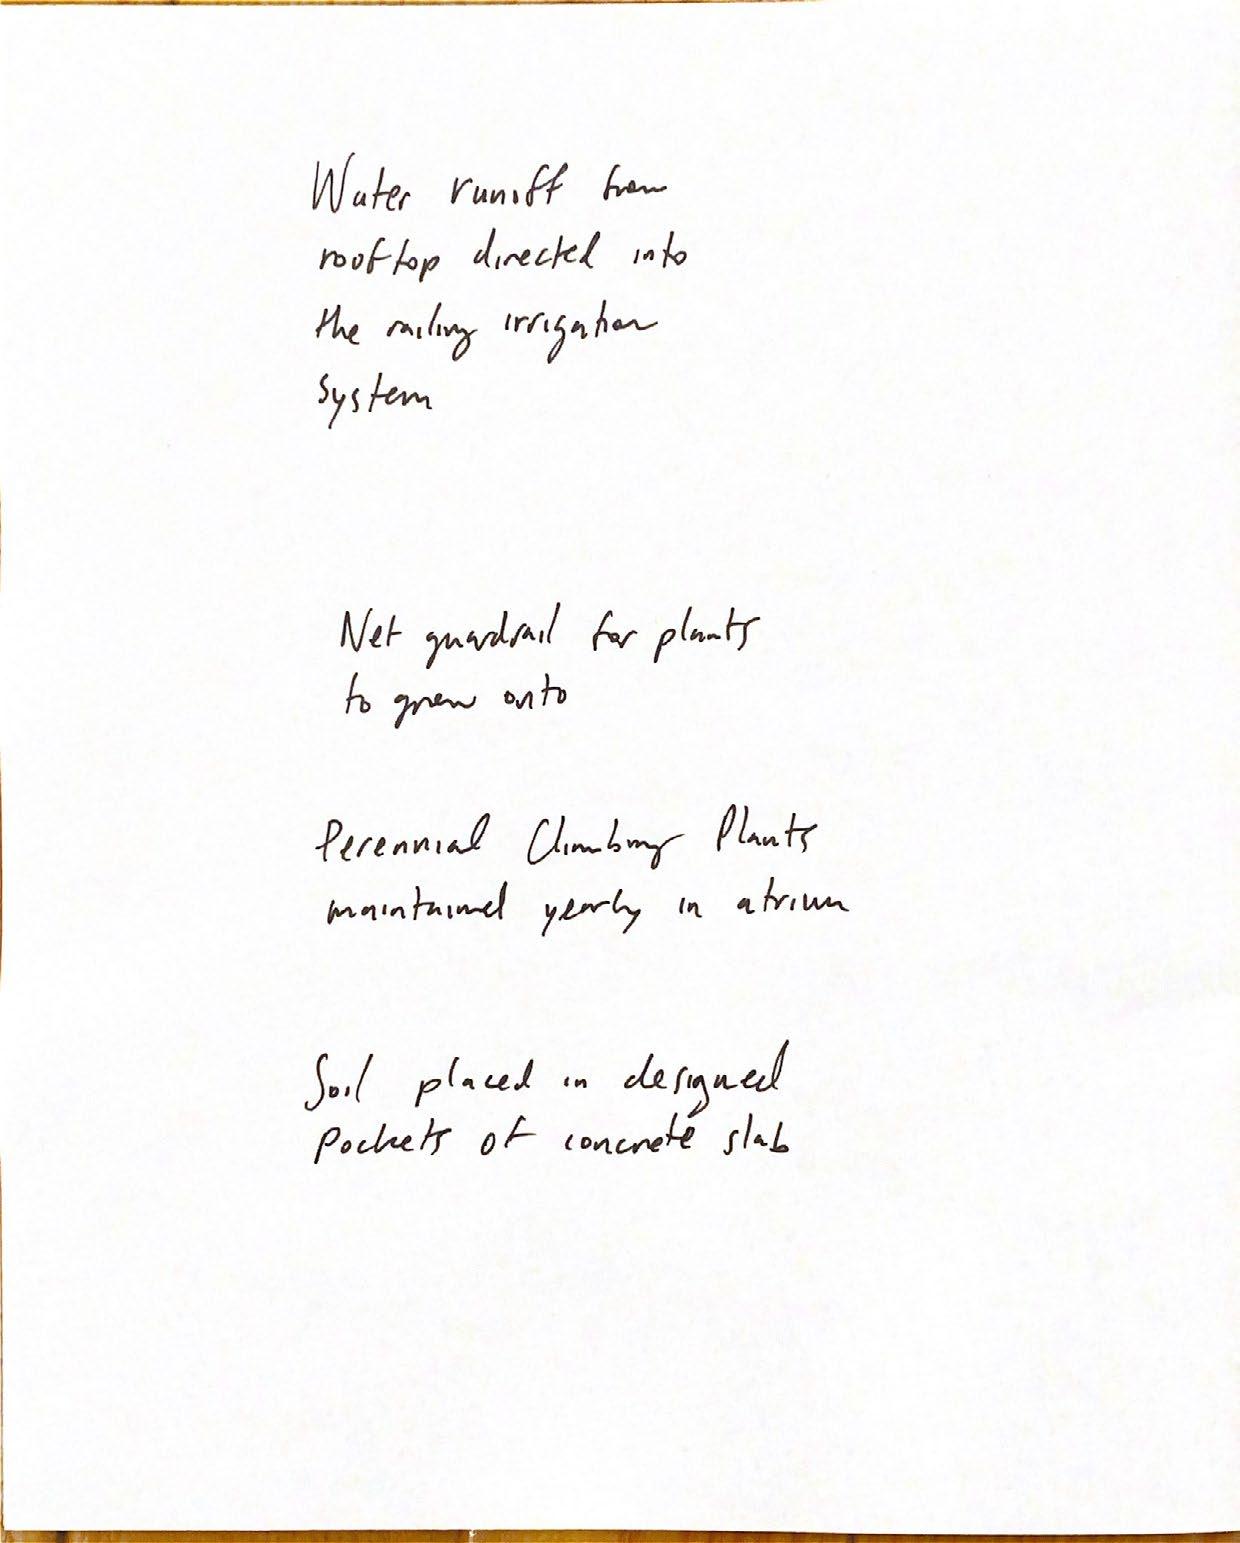 Water runoff from
rooftop directed into
the railing irrigation
system
Net guardrail for plants
to grow onto
Perennial Climbing Plants
maintained yearly in atrium
Soil placed in designed
pockets of concrete slab